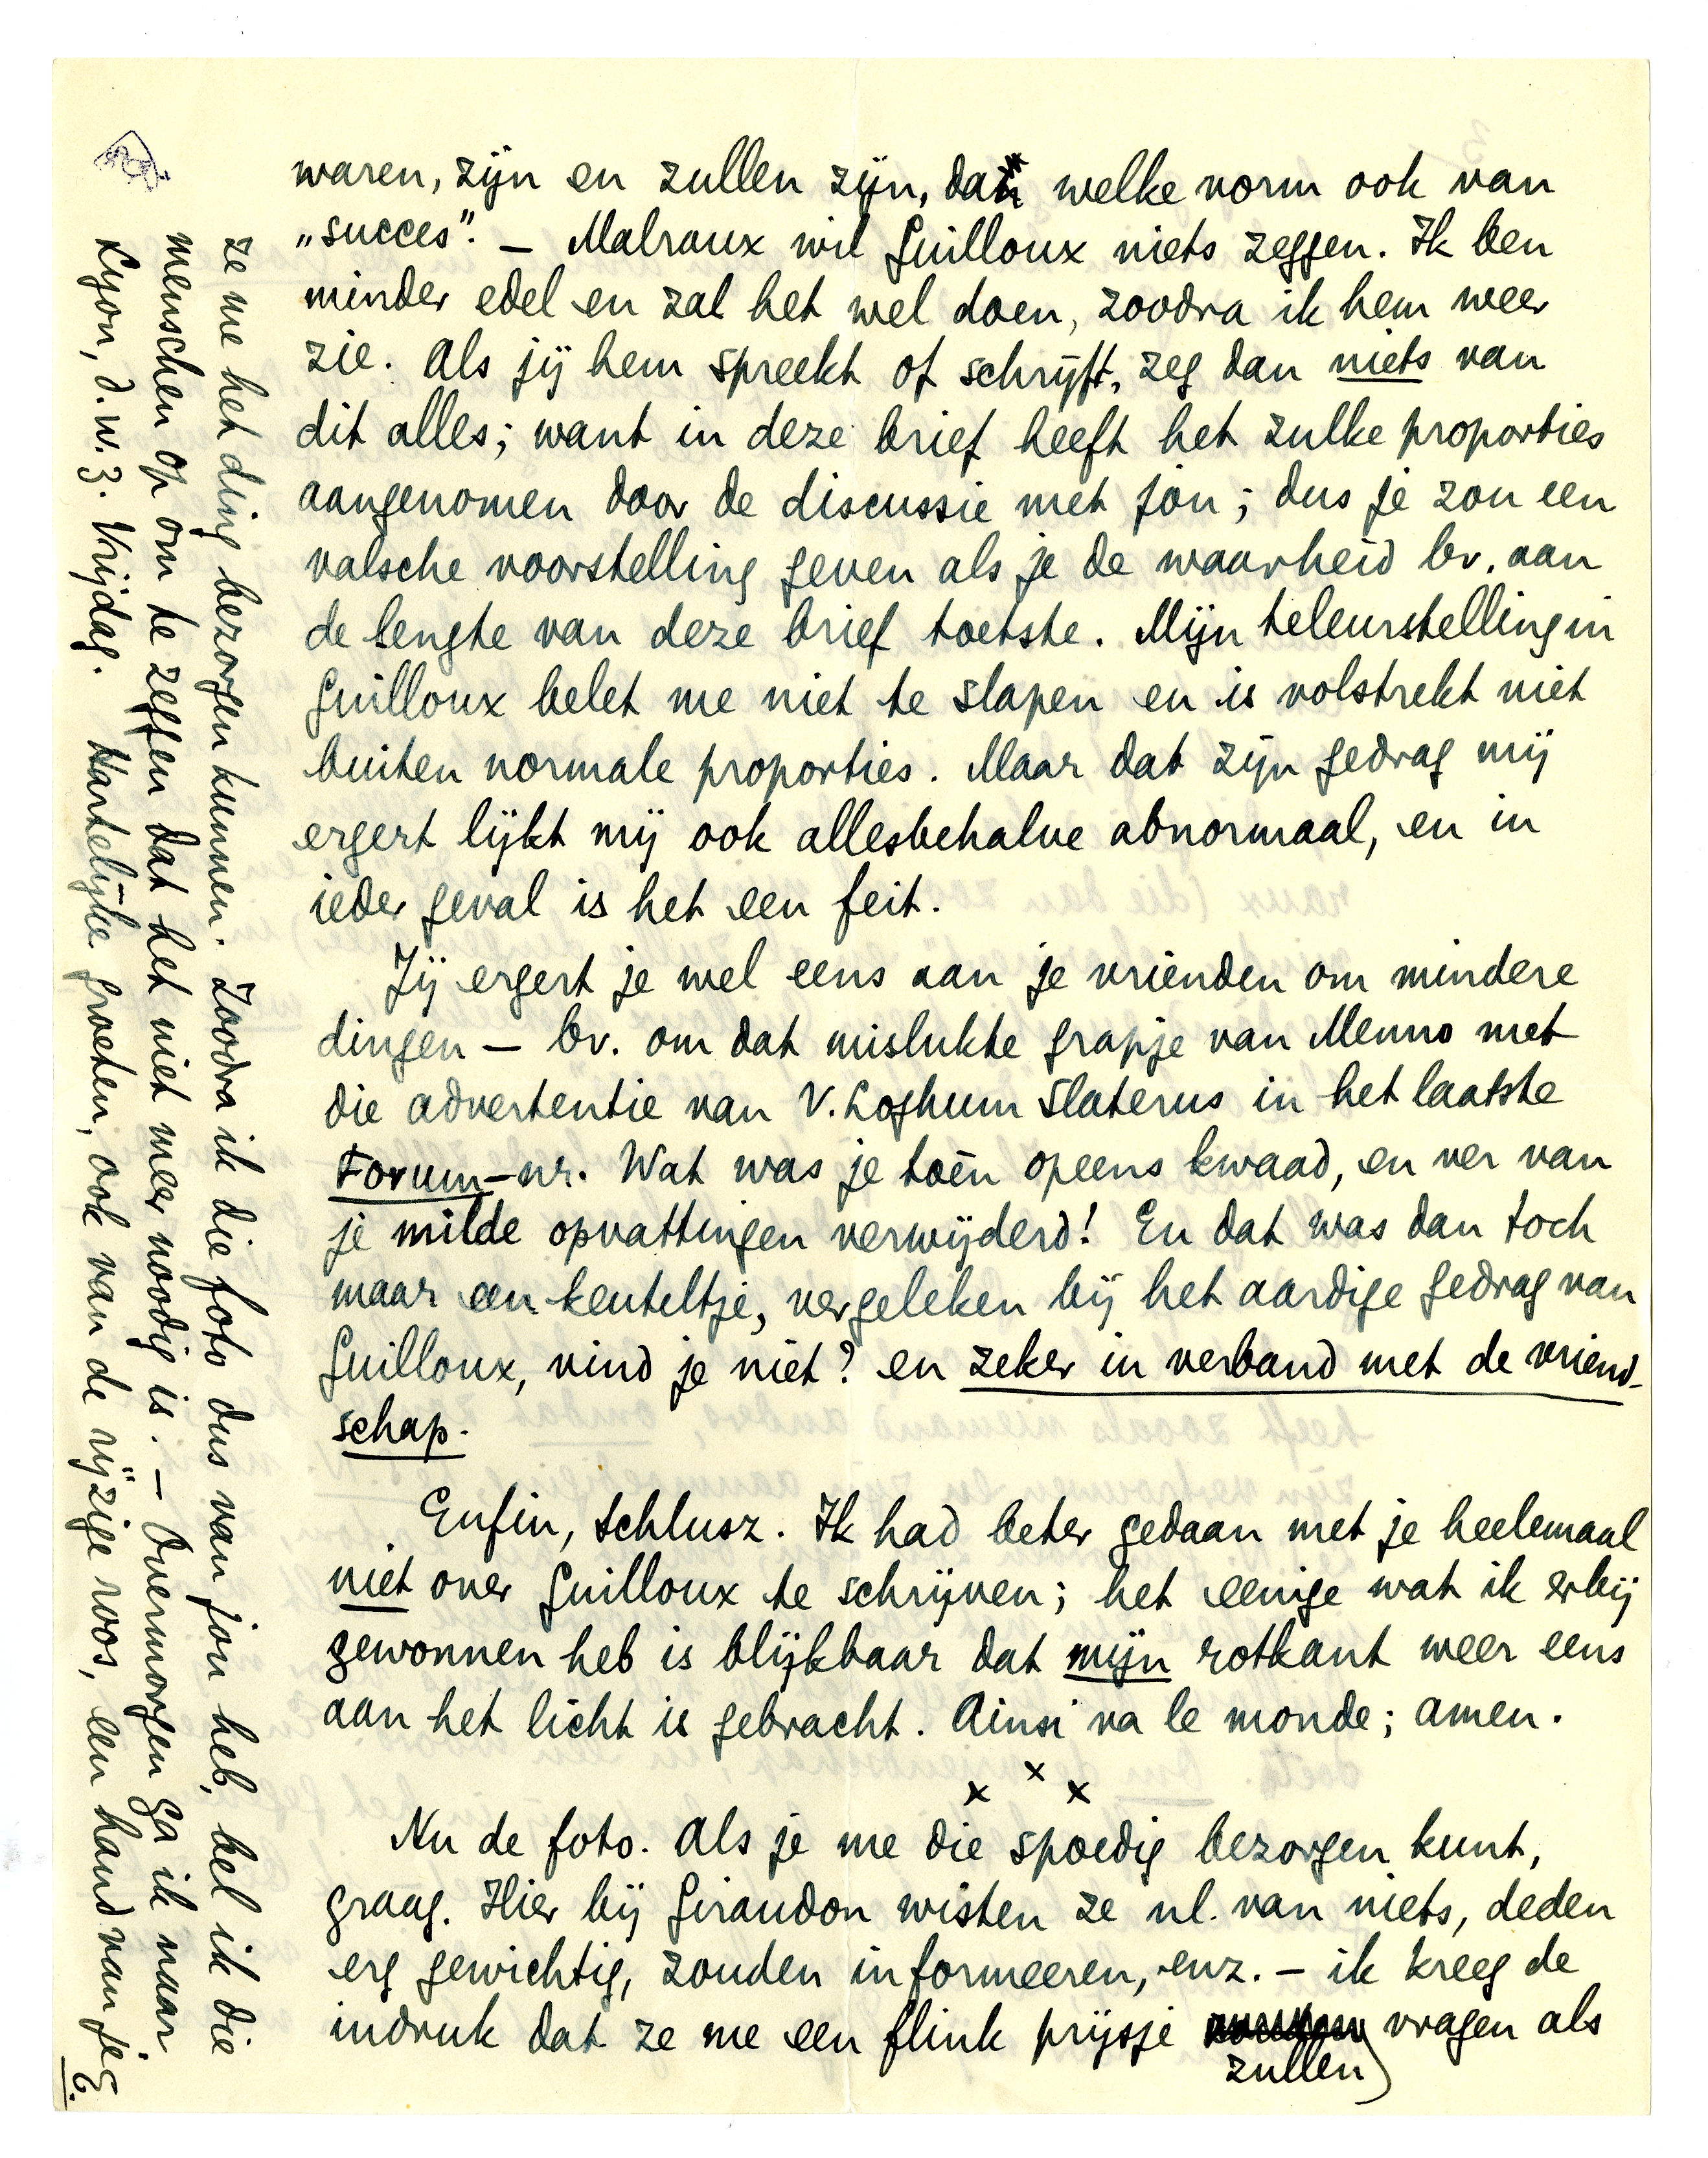 waren, zijn en zullen zijn, dan welke vorm ook van
„succes”. – Malraux wil Guilloux niets zeggen. Ik ben
minder edel en zal het wel doen, zoodra ik hem weer
zie. Als jij hem spreekt of schrijft, zeg dan niets van
dit alles; want in deze brief heeft het zulke proporties
aangenomen door de discussie met jou; dus je zou een
valsche voorstelling geven als je de waarheid bv. aan
de lengte van deze brief toetste. Mijn teleurstelling in
Guilloux belet me niet te slapen en is volstrekt niet
buiten normale proporties. Maar dat zijn gedrag mij
ergert lijkt mij ook allesbehalve abnormaal, en in
ieder geval is het een feit.
Jij ergert je wel eens aan je vrienden om mindere
dingen – bv. om dat mislukte grapje van Menno met
die advertentie van V. Loghum Slaterus in het laatste
Forum-nr. Wat was je toèn opeens kwaad, en ver van
je milde opvattingen verwijderd! En dat was dan toch
maar een keuteltje, vergeleken bij het aardige gedrag van
Guilloux, vind je niet? en zeker in verband met de vriend-
schap.
Enfin, schlusz. Ik had beter gedaan met je heelemaal
niet over Guilloux te schrijven; het eenige wat ik erbij
gewonnen heb is blijkbaar dat mijn rotkant weer eens
aan het licht is gebracht. Ainsi va le monde; amen.
x x x
Nu de foto. Als je me die spoedig bezorgen kunt,
graag. Hier bij Giraudon wisten ze nl. van niets, deden
erg gewichtig, zouden informeeren, enz. – ik kreeg de
indruk dat ze me een flink prijsje zullen vragen als
ze me het ding bezorgen kunnen. Zoodra ik die foto dus van jou heb, bel ik die
menschen op om te zeggen dat het niet meer noodig is. – Overmorgen ga ik naar
Lyon, d.w.z. Vrijdag. Hartelijke groeten, ook van de rijzige roos, een hand van je
E.